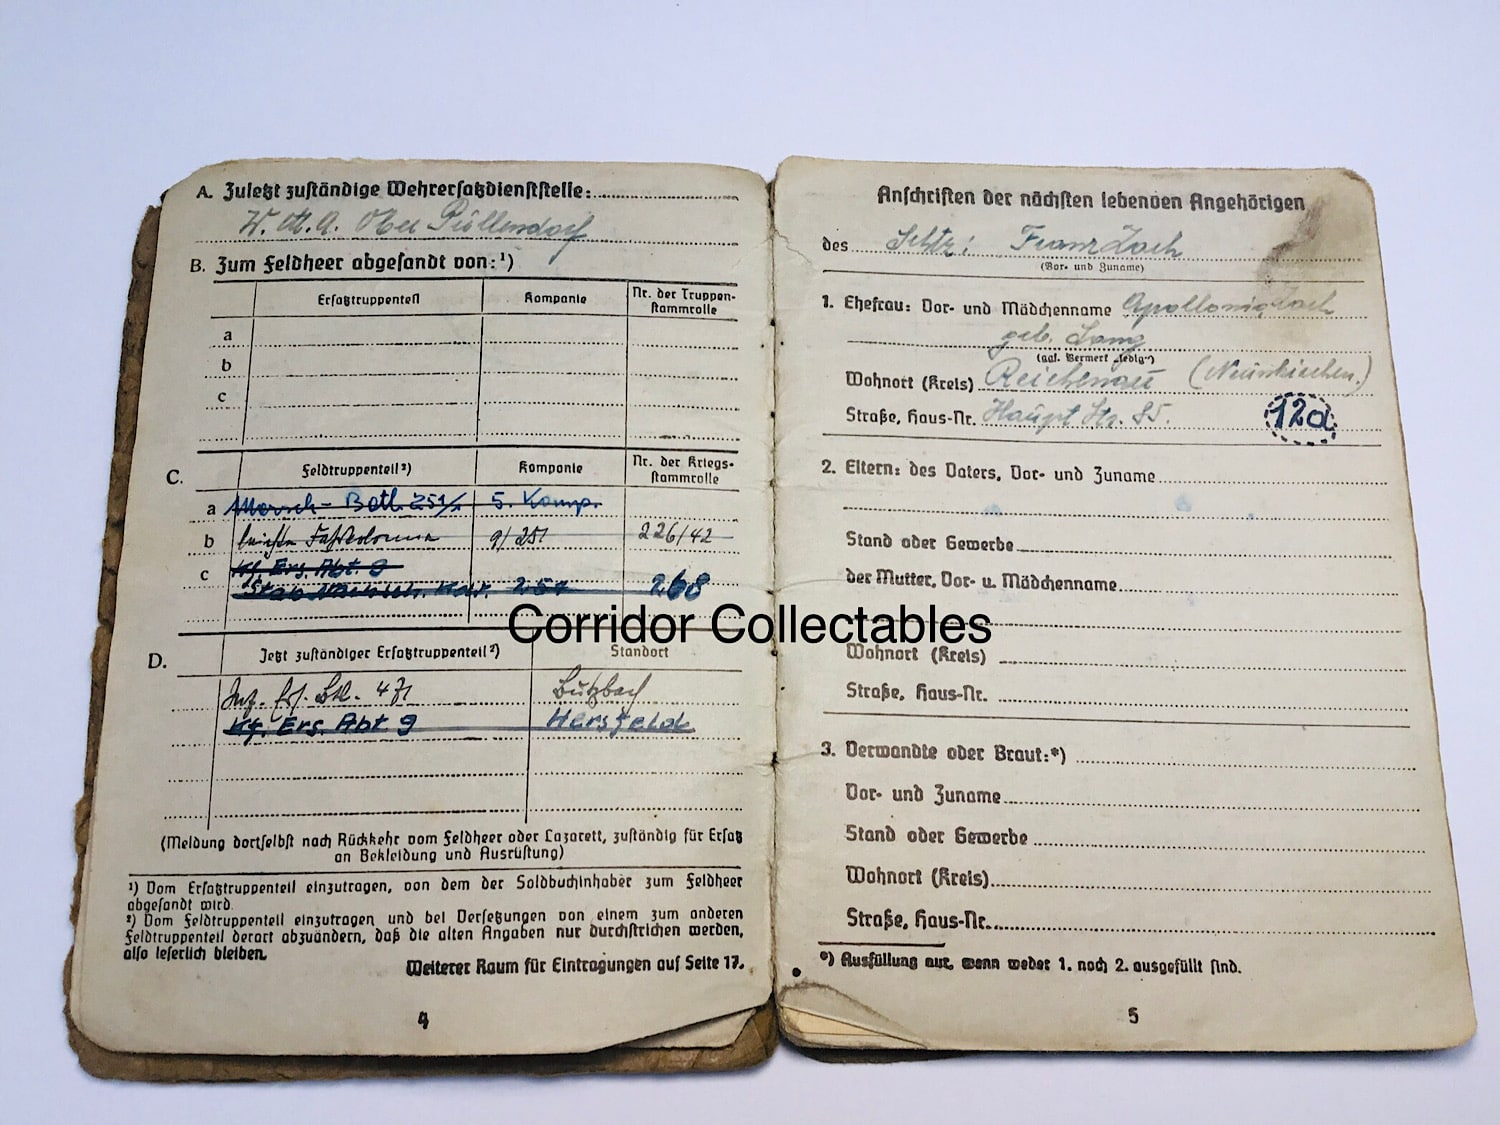 A. Zuletzt zuständige Wehrersatzdienststelle:
W.M.A. Ober Püllendorf
B. Zum Feldheer abgesandt von:¹)
Ersatztruppenteil Kompanie Nr. der Truppen-
stammrolle
a
b
c
C. Feldtruppenteil²) Kompanie Nr. der Kriegs-
stammrolle
a Marsch-Batl. 251/1 5. Komp.
b leichte Fahrkolonne 9/251 226/42
c Kf. Ers. Abt. 9
Stab 251 268
D. Jetzt zuständiger Ersatztruppenteil²) Standort
Inf. Ers. Btl. 471 Butzbach
Kf. Ers. Abt 9 Hersfeld
(Meldung dortselbst nach Rückkehr vom Feldheer oder Lazarett, zuständig für Ersatz
an Bekleidung und Ausrüstung)
¹) Vom Ersatztruppenteil einzutragen, von dem der Soldbuchinhaber zum Feldheer
abgesandt wird.
²) Vom Feldtruppenteil einzutragen und bei Versetzungen von einem zum anderen
Feldtruppenteil derart abzuändern, daß die alten Angaben nur durchstrichen werden,
also leserlich bleiben.
Weiterer Raum für Eintragungen auf Seite 17.
4
Anschriften der nächsten lebenden Angehörigen
des Schtz: Franz Zach
(Vor- und Zuname)
1. Ehefrau: Vor- und Mädchenname Apollonia Zach
geb. Lang
(ggf. Vermerk „ledig“)
Wohnort (Kreis) Reichenau (Neunkirchen.)
Straße, Haus-Nr. Haupt Str. 85. 12a
2. Eltern: des Vaters, Vor- und Zuname
Stand oder Gewerbe
der Mutter, Vor- u. Mädchenname
Wohnort (Kreis)
Straße, Haus-Nr.
3. Verwandte oder Braut:*)
Vor- und Zuname
Stand oder Gewerbe
Wohnort (Kreis)
Straße, Haus-Nr.
*) Ausfüllung nur, wenn weder 1. noch 2. ausgefüllt sind.
5
Corridor Collectables